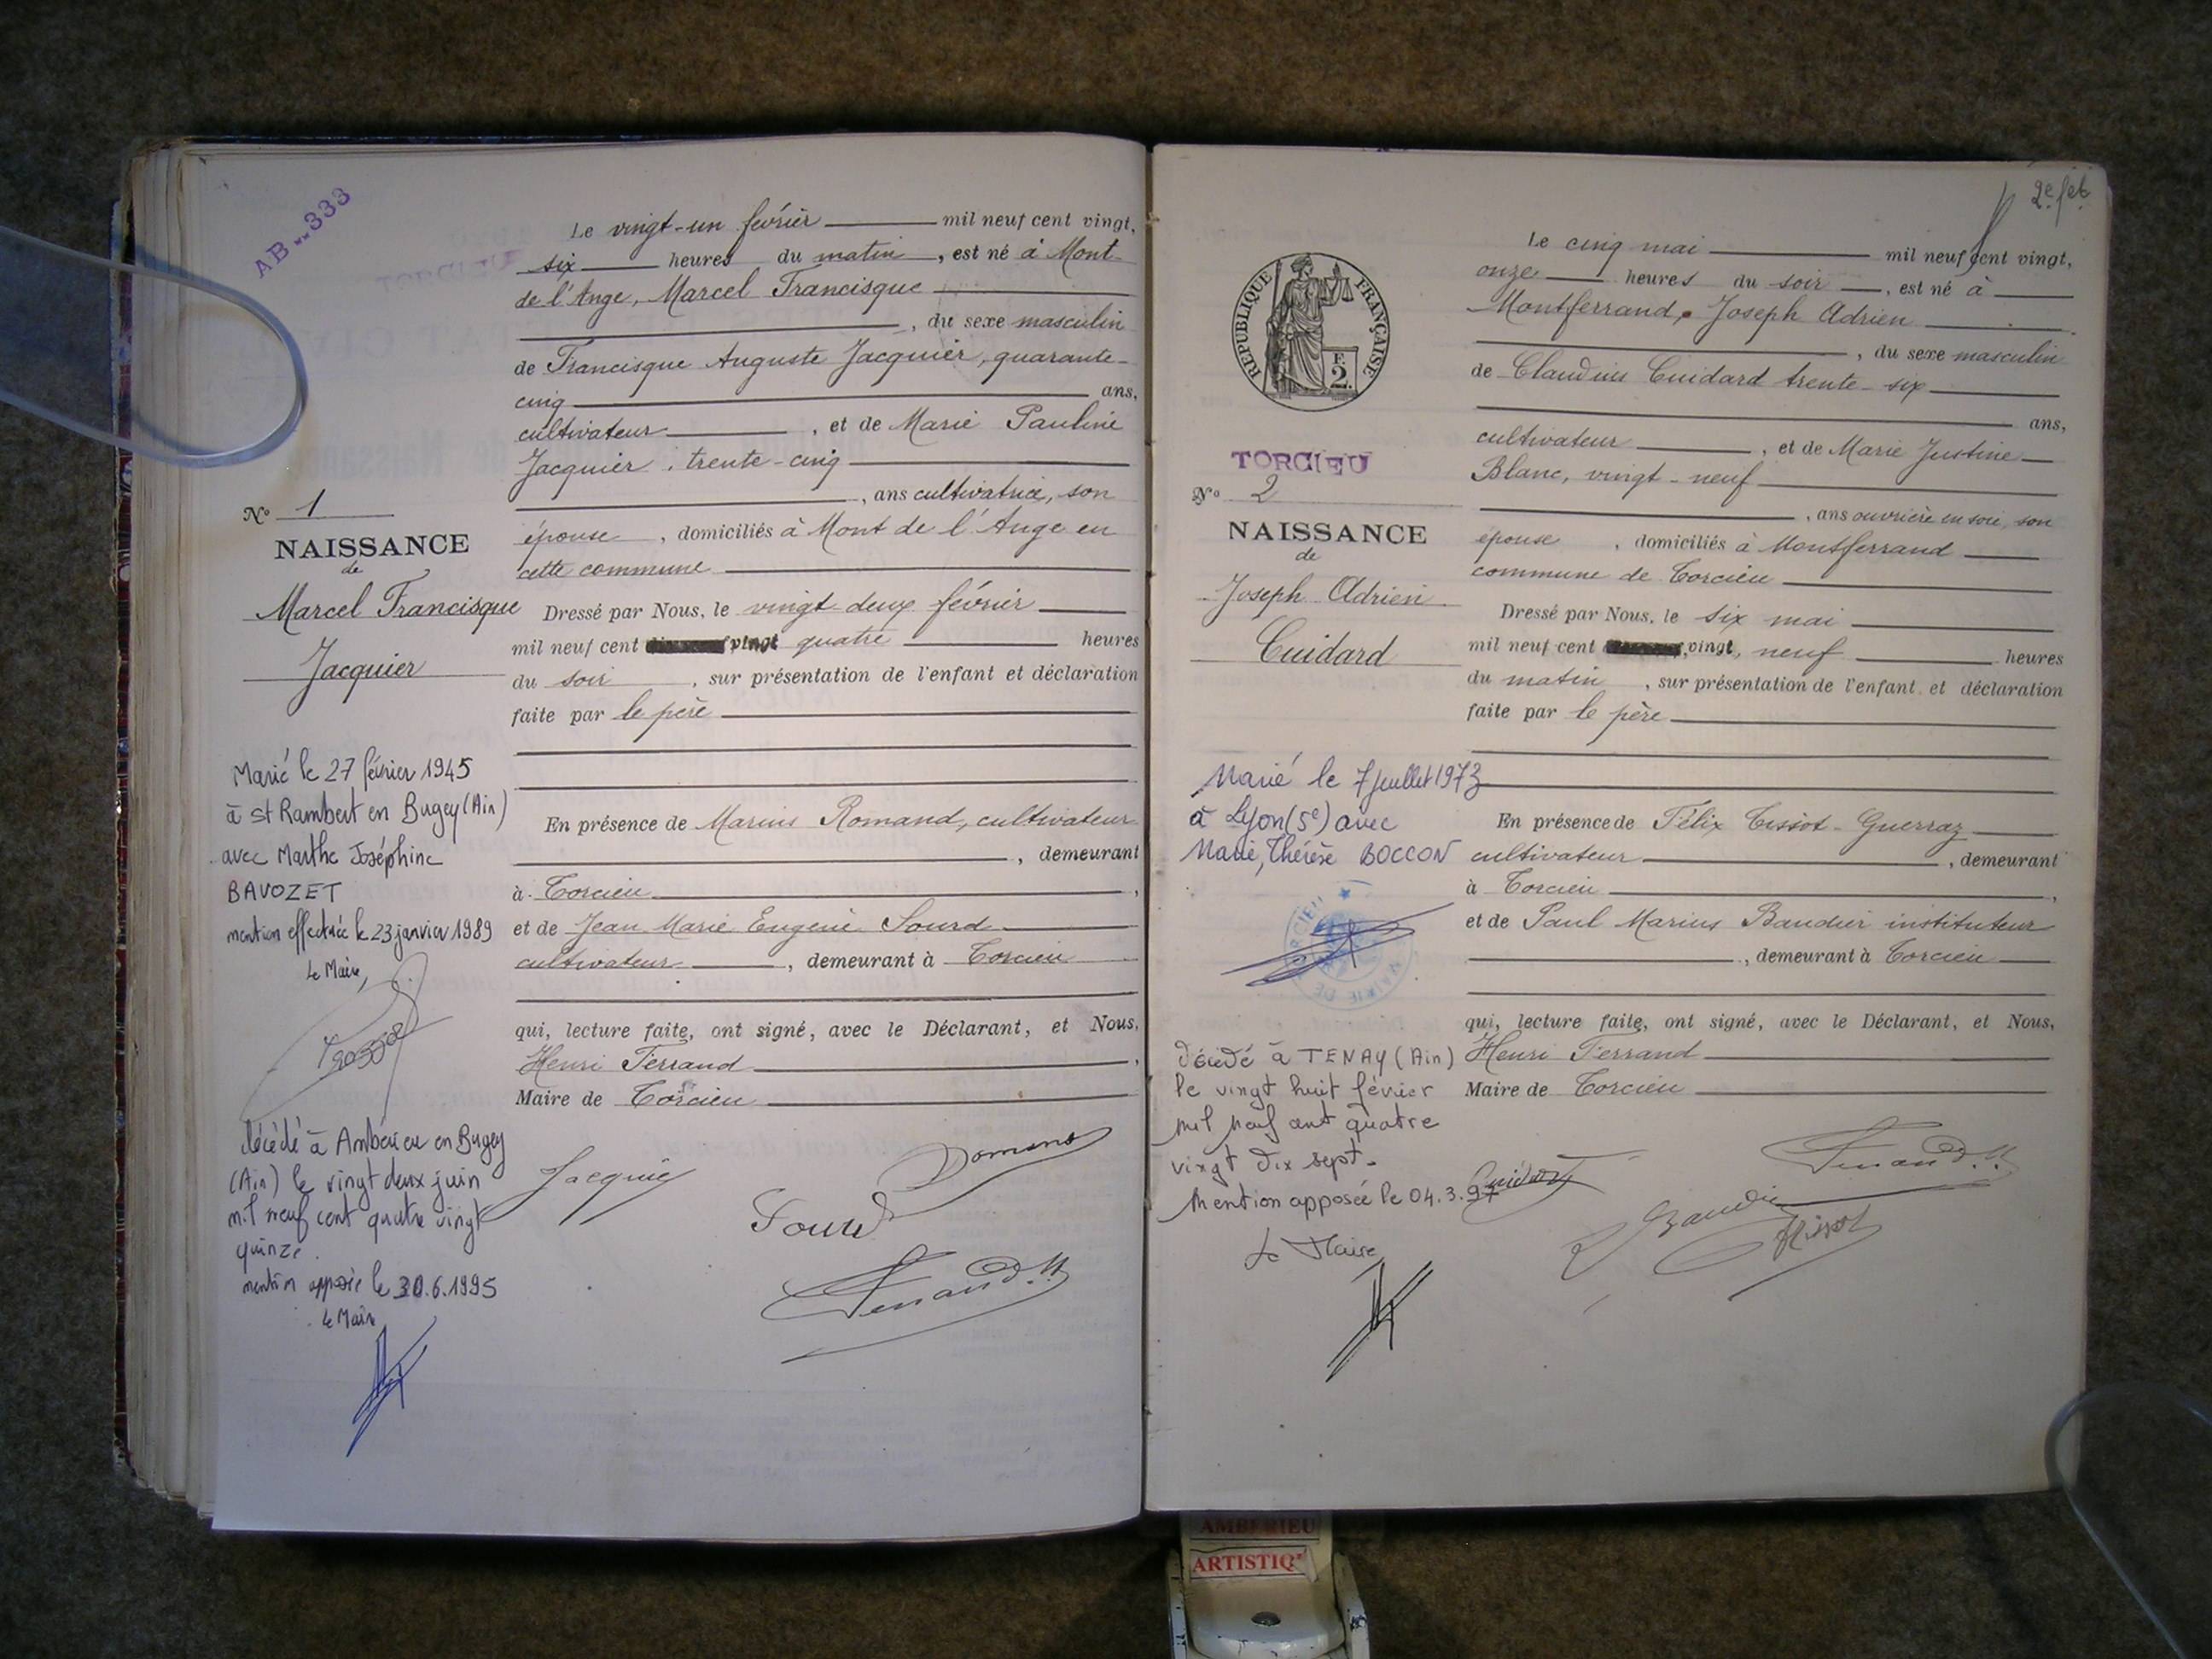 AB..333
Le vingt-un février mil neuf cent vingt,
six heures du matin, est né à Mont-
de l'Ange, Marcel Francisque
, du sexe masculin
de Francisque Auguste Jacquier, quarante-
cinq ans,
cultivateur, et de Marie Pauline
Jacquier, trente-cinq
, ans cultivatrice, son
épouse, domiciliés à Mont de l'Ange en
cette commune
Dressé par Nous, le vingt-deux février
mil neuf cent vingt quatre heures
du soir, sur présentation de l'enfant et déclaration
faite par le père
En présence de Marius Romand, cultivateur
, demeurant
à Torcieu,
et de Jean Marie Eugène Sourd
cultivateur, demeurant à Torcieu
qui, lecture faite, ont signé, avec le Déclarant, et Nous,
Henri Ferrand,
Maire de Torcieu
Jacquie
Romand
Sourd
Ferrand
No 1
NAISSANCE
de
Marcel Francisque
Jacquier
Marié le 27 février 1945
à St Rambert en Bugey (Ain)
avec Marthe Joséphine
BAVOZET
mention effectuée le 23 janvier 1989
Le Maire,
décédé à Ambérieu en Bugey
(Ain) le vingt deux juin
mil neuf cent quatre vingt
quinze.
mention apposée le 30.6.1995
Le Maire
2e fet
REPUBLIQUE FRANÇAISE
F.
2.
TORCIEU
No 2
NAISSANCE
de
Joseph Adrien
Cuidard
Le cinq mai mil neuf cent vingt,
onze heures du soir, est né à
Montferrand, Joseph Adrien
, du sexe masculin
de Claudius Cuidard trente-six
ans,
cultivateur, et de Marie Justine
Blanc, vingt-neuf
, ans ouvrière en soie, son
épouse, domiciliés à Montferrand
commune de Torcieu
Dressé par Nous, le six mai
mil neuf cent vingt, neuf heures
du matin, sur présentation de l'enfant et déclaration
faite par le père
En présence de Félix Tissot-Guerraz
cultivateur, demeurant
à Torcieu,
et de Paul Marius Baudier instituteur
, demeurant à Torcieu
qui, lecture faite, ont signé, avec le Déclarant, et Nous,
Henri Ferrand
Maire de Torcieu
Cuidard
Ferrand
Baudier
Tissot
Marié le 7 juillet 1973
à Lyon (5e) avec
Marie, Thérèse BOCCON
MAIRIE DE TORCIEU
décédé à TENAY (Ain)
le vingt huit février
mil neuf cent quatre
vingt dix sept.
Mention apposée le 04.3.97
Le Maire
AMBERIEU
ARTISTIQ'